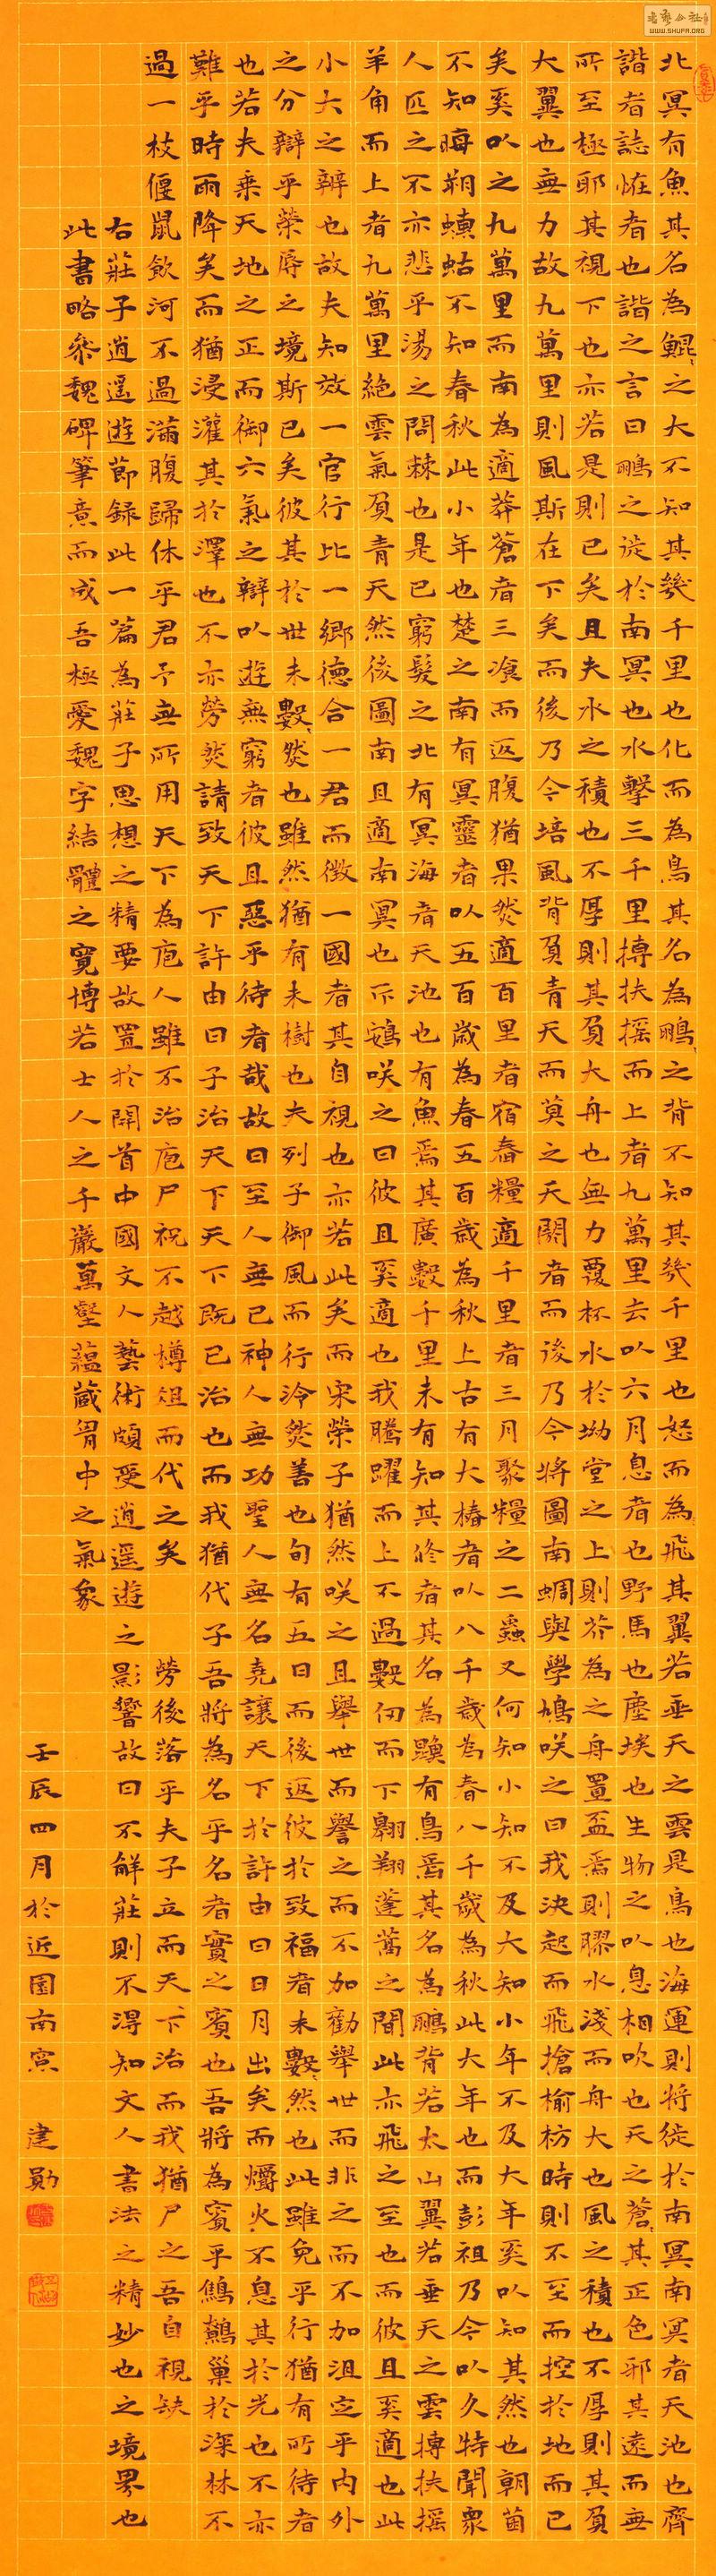 北冥有魚其名為鯤〻之大不知其幾千里也化而為鳥其名為鵬〻之背不知其幾千里也怒而為飛其翼若垂天之雲是鳥也海運則將徙於南冥南冥者天池也齊
諧者誌恠者也諧之言曰鵬之徙於南冥也水擊三千里摶扶搖而上者九萬里去以六月息者也野馬也塵埃也生物之以息相吹也天之蒼〻其正色邪其遠而無
所至極耶其視下也亦若是則已矣且夫水之積也不厚則其負大舟也無力覆杯水於坳堂之上則芥為之舟置盃焉則膠水淺而舟大也風之積也不厚則其負
大翼也無力故九萬里則風斯在下矣而後乃今培風背負青天而莫之夭閼者而後乃今將圖南蜩與學鳩咲之曰我決起而飛搶榆枋時則不至而控於地而已
矣奚以之九萬里而南為適莽蒼者三飡而返腹猶果然適百里者宿舂糧適千里者三月聚糧之二蟲又何知小知不及大知小年不及大年奚以知其然也朝菌
不知晦朔蟪蛄不知春秋此小年也楚之南有冥靈者以五百歲為春五百歲為秋上古有大椿者以八千歲為春八千歲為秋此大年也而彭祖乃今以久特聞衆
人匹之不亦悲乎湯之問棘也是已窮髮之北有冥海者天池也有魚焉其廣數千里未有知其修者其名為鯤有鳥焉其名為鵬背若太山翼若垂天之雲摶扶搖
羊角而上者九萬里絕雲氣負青天然後圖南且適南冥也斥鴳咲之曰彼且奚適也我騰躍而上不過數仞而下翱翔蓬蒿之間此亦飛之至也而彼且奚適也此
小大之辨也故夫知效一官行比一鄉德合一君而徵一國者其自視也亦若此矣而宋榮子猶然咲之且舉世而譽之而不加勸舉世而非之而不加沮定乎內外
之分辯乎榮辱之境斯已矣彼其於世未數〻然也雖然猶有未樹也夫列子御風而行泠然善也旬有五日而後返彼於致福者未數〻然也此雖免乎行猶有所待者
也若夫乘天地之正而御六氣之辯以遊無窮者彼且惡乎待者哉故曰至人無己神人無功聖人無名堯讓天下於許由曰日月出矣而爝火不息其於光也不亦
難乎時雨降矣而猶浸灌其於澤也不亦勞然請致天下許由曰子治天下天下既已治也而我猶代子吾將為名乎名者實之賓也吾將為賓乎鷦鷯巢於深林不
過一枝偃鼠飲河不過滿腹歸休乎君予無所用天下為庖人雖不治庖尸祝不越樽俎而代之矣 勞後落乎夫子立而天下治而我猶尸之吾自視缺
右莊子逍遥遊節録此一篇為莊子思想之精要故置於開首中國文人藝術頗受逍遥遊之影響故曰不解莊則不得知文人書法之精妙也之境界也
此書略參魏碑筆意而成吾極愛魏字結體之寬博若士人之千巖萬壑蘊藏胷中之氣象
壬辰四月於近園南窗 建勛
WWW.SHUFA.ORG